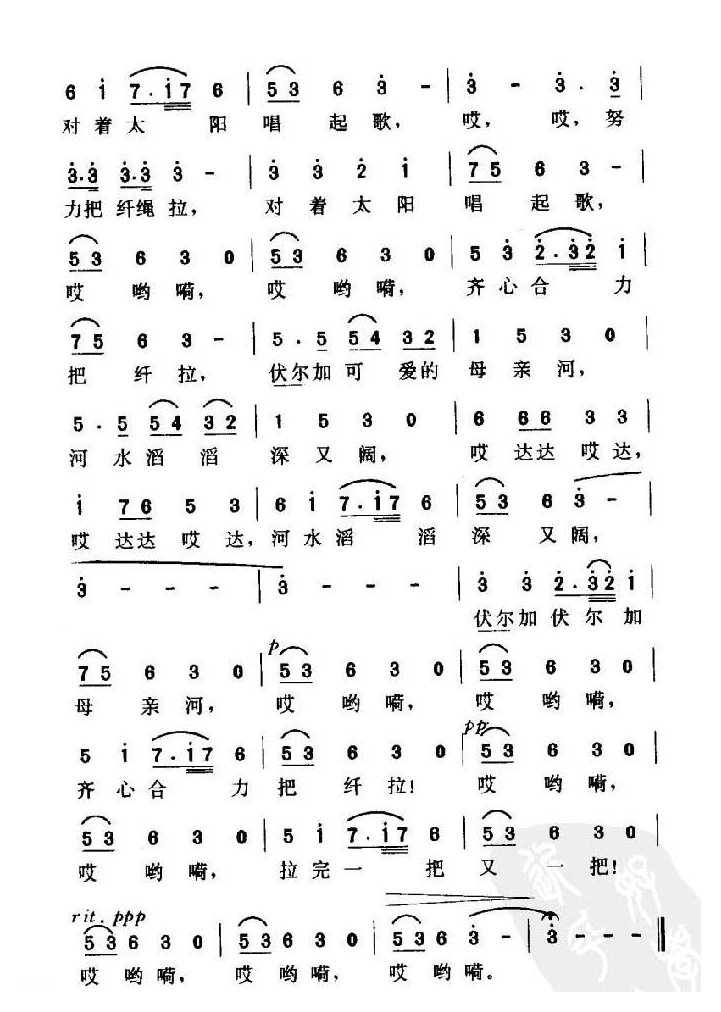 6 i 7·i7 6 | 53 6 3 - | 3 - 3·3 |
对着太 阳 唱 起歌， 哎， 哎，努
3·3 3·3 3 - | 3 3 2 i | 75 6 3 - |
力把纤绳拉， 对 着 太 阳 唱 起 歌，
53 6 3 0 | 53 6 3 0 | 5 3 2·32 i |
哎 哟嗬， 哎 哟嗬， 齐心合 力
75 6 3 - | 5·5 54 32 | 1 5 3 0 |
把 纤拉， 伏尔加可 爱的 母亲河，
5·5 54 32 | 1 5 3 0 | 6 66 3 3 |
河水滔 滔 深又阔， 哎达达哎达，
i 76 5 3 | 6 i 7·i7 6 | 53 6 3 - |
哎达达哎达，河水滔 滔 深 又阔，
3 - - - | 3 - - - | 3 3 2·32 i |
伏尔加伏尔加
p
75 6 3 0 | 53 6 3 0 | 53 6 3 0 |
母 亲河， 哎 哟嗬， 哎 哟嗬，
pp
5 i 7·i7 6 | 53 6 3 0 | 53 6 3 0 |
齐心合 力 把 纤拉！ 哎 哟嗬，
53 6 3 0 | 5 i 7·i7 6 | 53 6 3 0 |
哎 哟嗬， 拉完一 把 又 一把！
rit. ppp
53 6 3 0 | 53 6 3 0 | 53 6 3 - | 3 - - - ‖
哎 哟嗬， 哎 哟嗬， 哎 哟嗬。